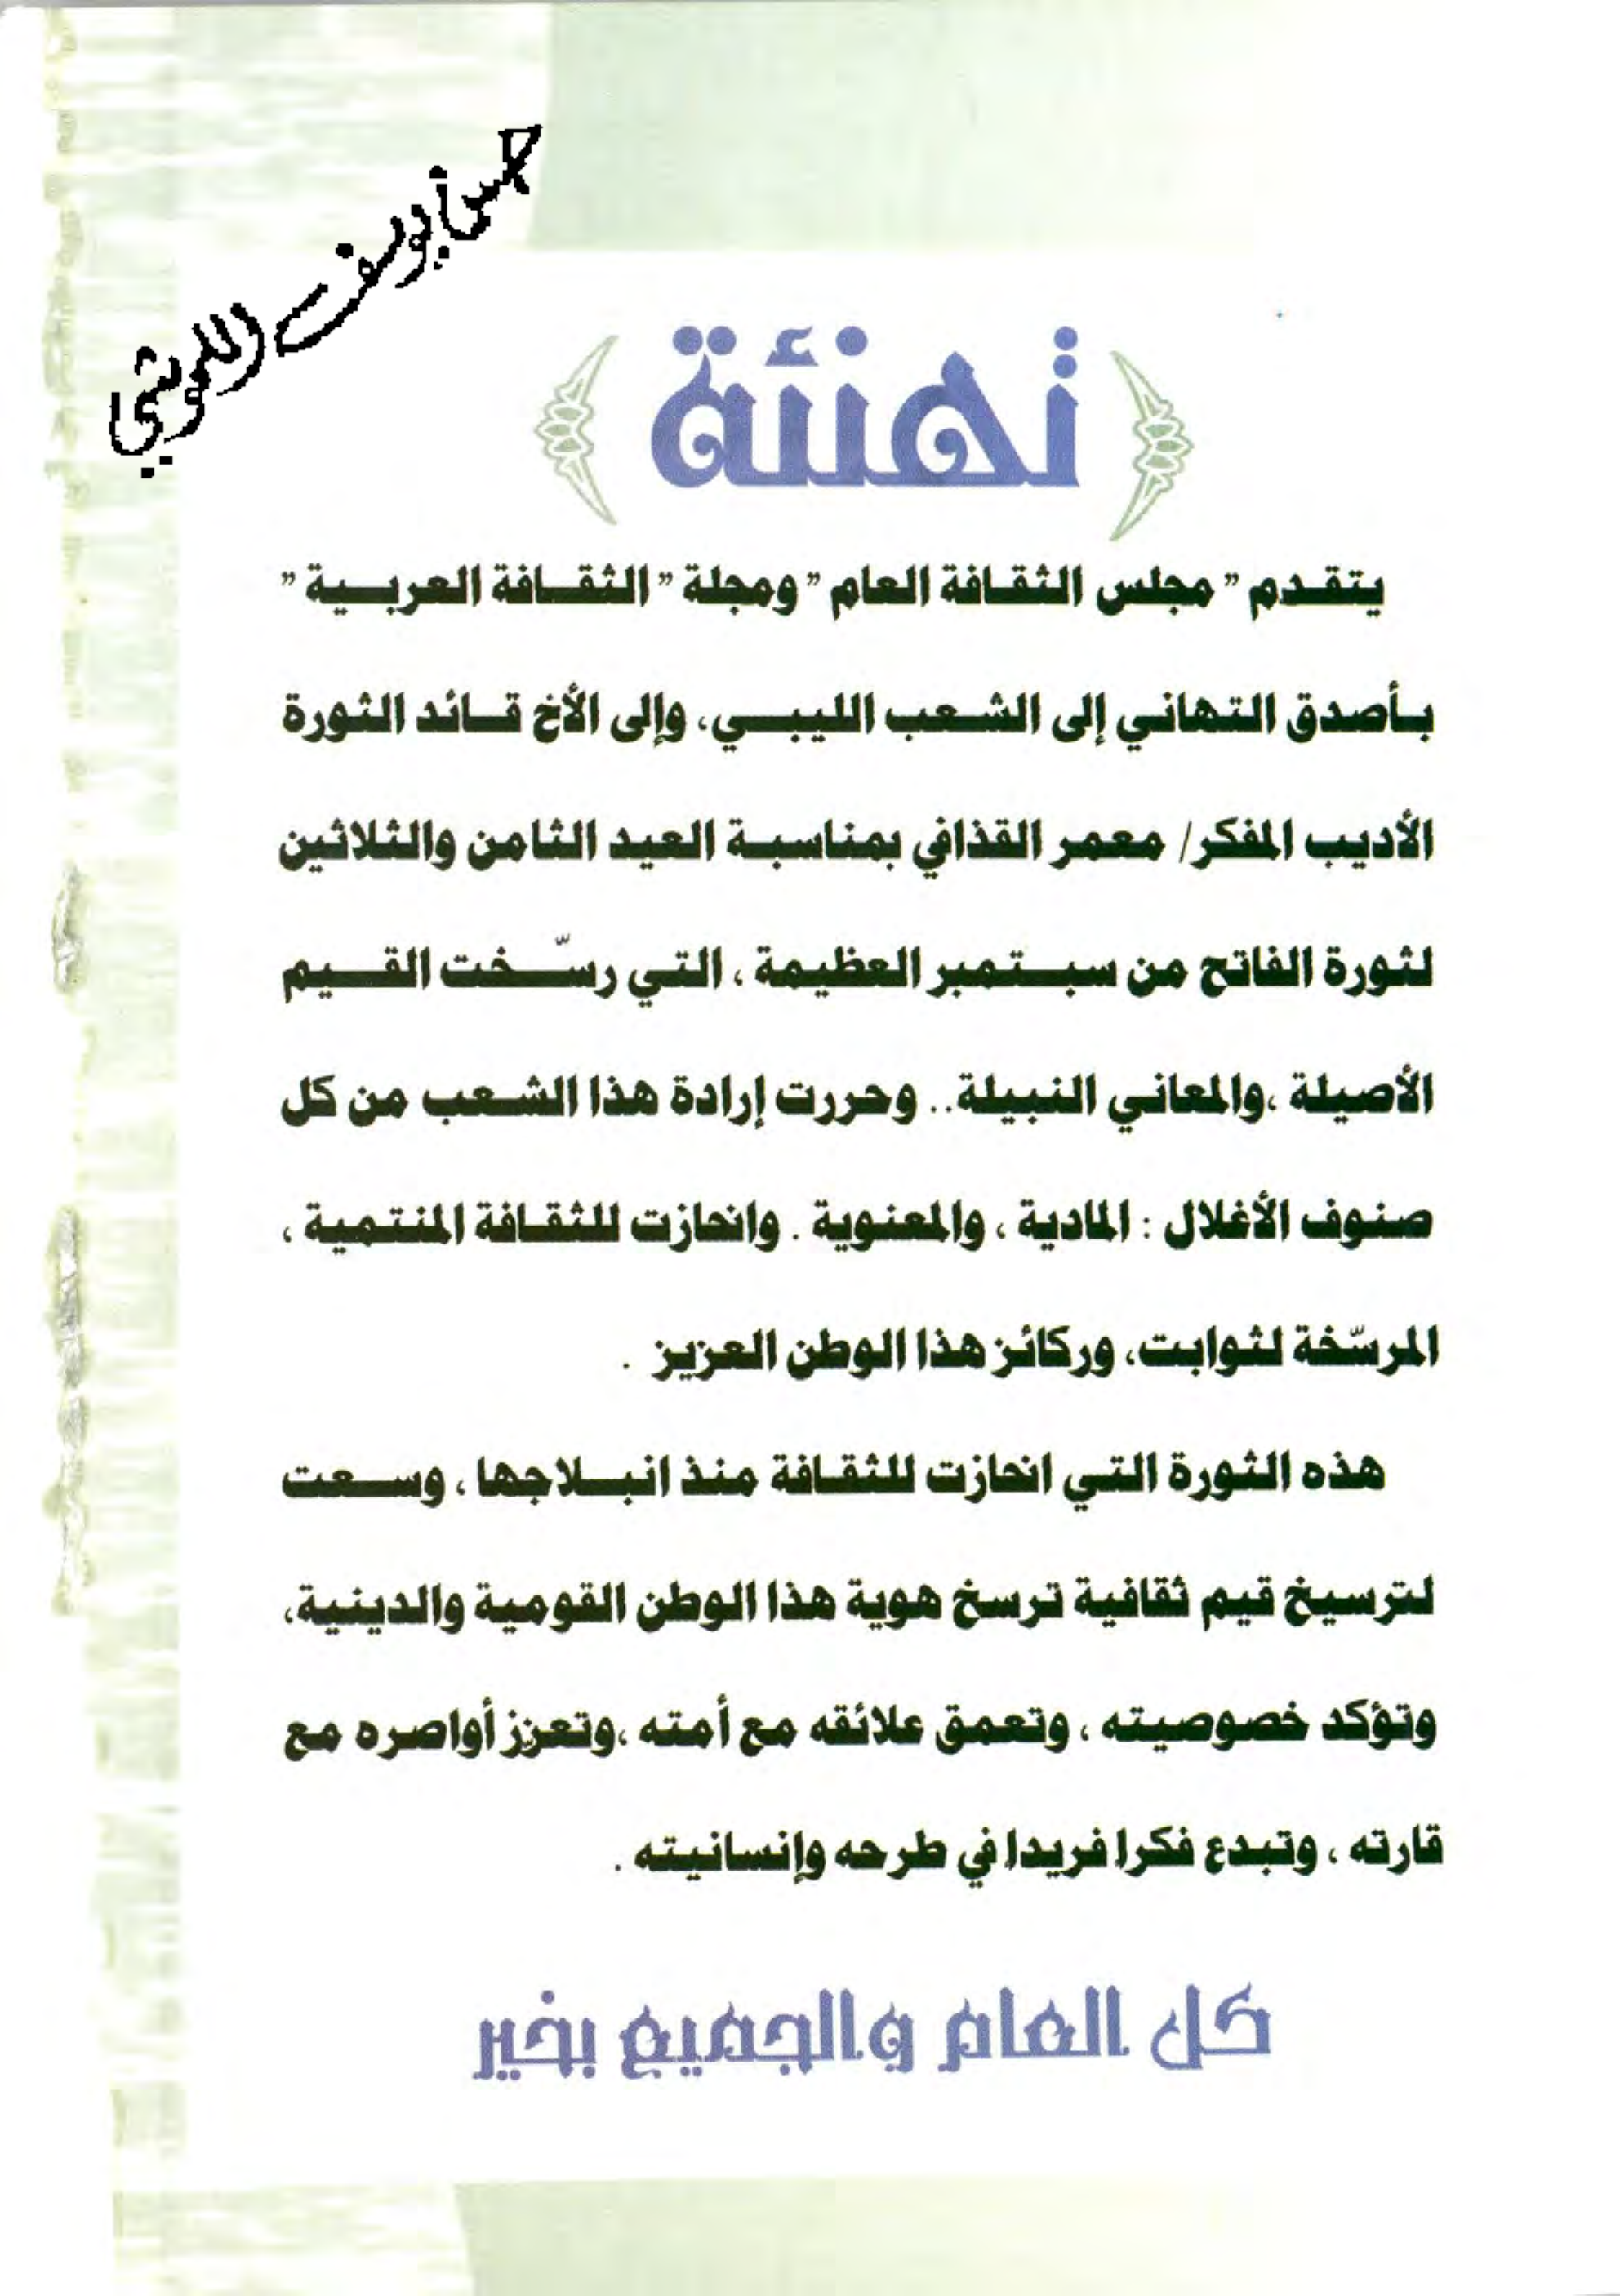 حسن يوسف
تهنئة
يتقدم " مجلس الثقافة العام " ومجلة " الثقافة العربية "
بأصدق التهاني إلى الشعب الليبي، وإلى الأخ قائد الثورة
الأديب المفكر/ معمر القذافي بمناسبة العيد الثامن والثلاثين
لثورة الفاتح من سبتمبر العظيمة ، التي رسّخت القيم
الأصيلة ،والمعاني النبيلة.. وحررت إرادة هذا الشعب من كل
صنوف الأغلال : المادية ، والمعنوية . وانحازت للثقافة المنتمية ،
المرسّخة لثوابت، وركائز هذا الوطن العزيز .
هذه الثورة التي انحازت للثقافة منذ انبلاجها ، وسعت
لترسيخ قيم ثقافية ترسخ هوية هذا الوطن القومية والدينية،
وتؤكد خصوصيته ، وتعمق علائقه مع أمته ،وتعزز أواصره مع
قارته ، وتبدع فكرا فريدا في طرحه وإنسانيته .
كل العام والجميع بخير